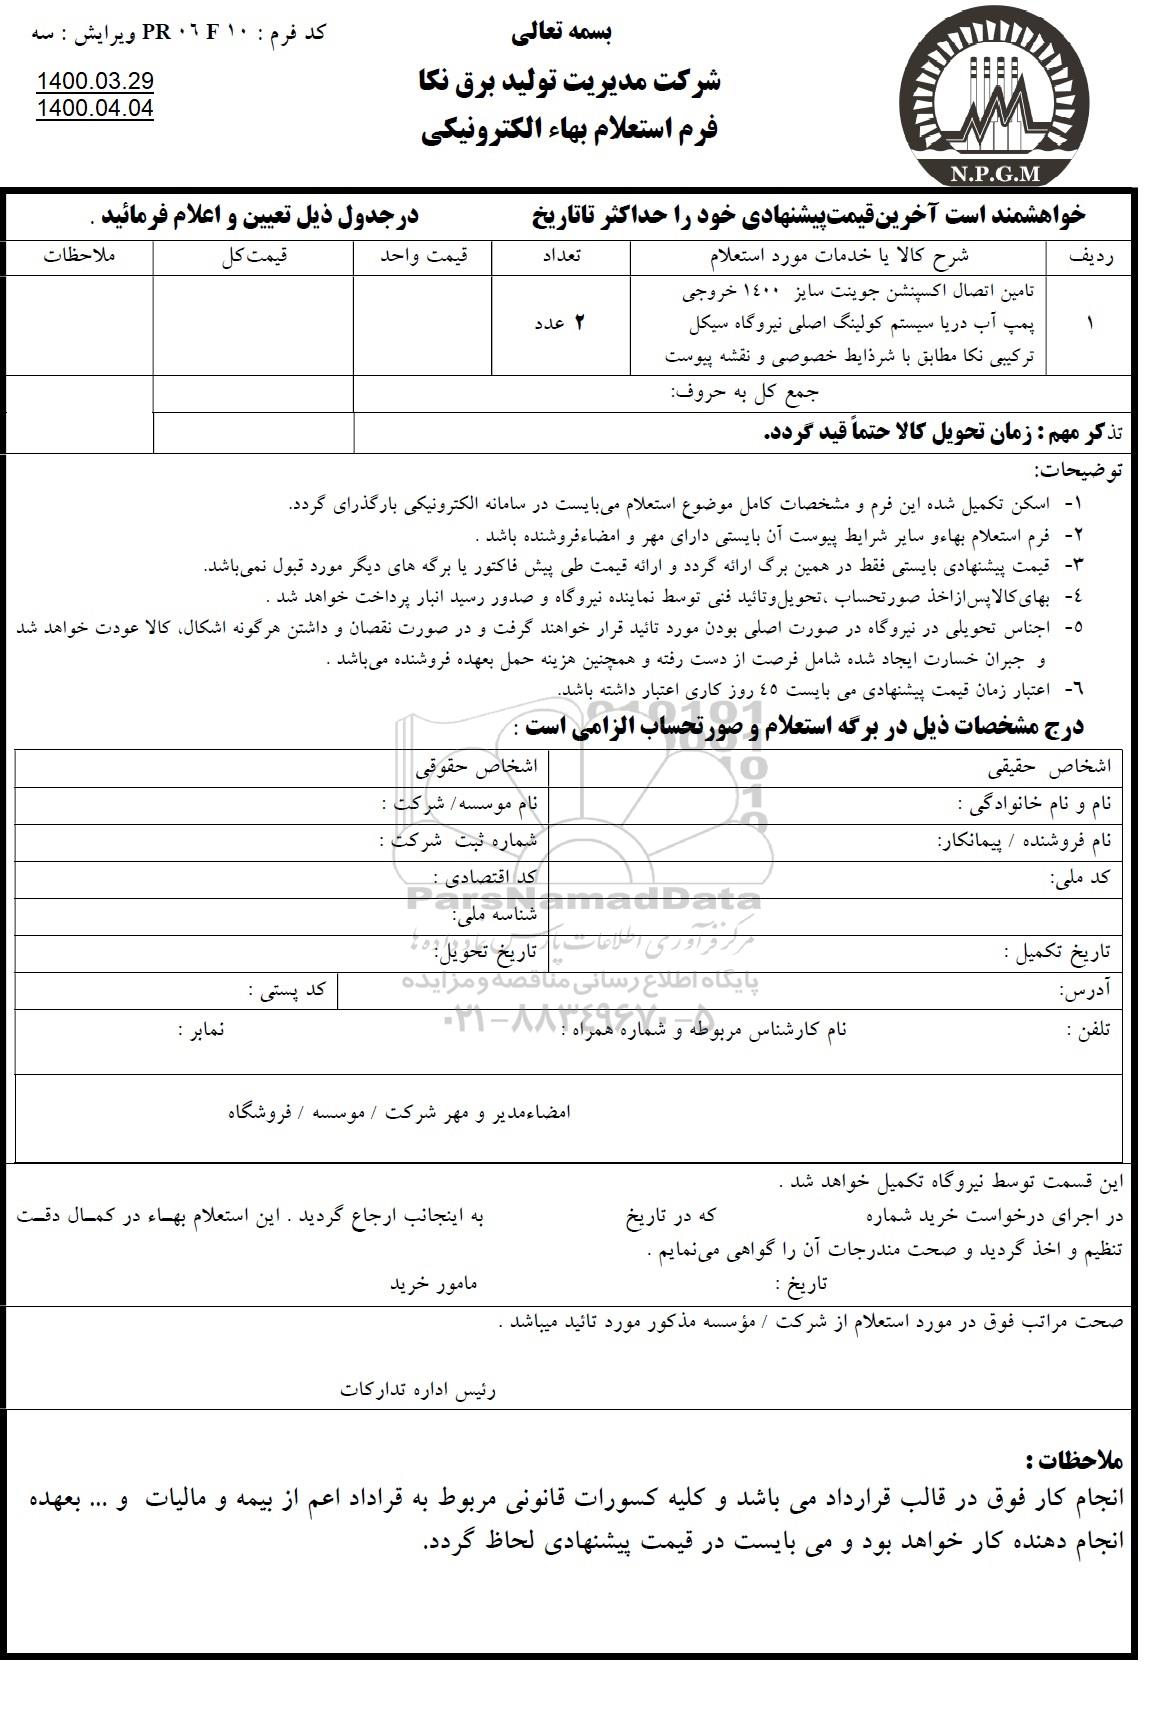 بسمه تعالی
کد فرم : PR ۰۶ F ۱۰ ویرایش : سه
شرکت مدیریت تولید برق نکا
1400.03.29
1400.04.04
فرم استعلام بهاء الکترونیکی
N.P.G.M
خواهشمند است آخرین‌قیمت‌پیشنهادی خود را حداکثر تاتاریخ درجدول ذیل تعیین و اعلام فرمائید .
ردیف شرح کالا یا خدمات مورد استعلام تعداد قیمت واحد قیمت‌کل ملاحظات
تامین اتصال اکسپنشن جوینت سایز ۱۴۰۰ خروجی
۱ پمپ آب دریا سیستم کولینگ اصلی نیروگاه سیکل ۲ عدد
ترکیبی نکا مطابق با شرذایط خصوصی و نقشه پیوست
جمع کل به حروف:
تذکر مهم : زمان تحویل کالا حتماً قید گردد.
توضیحات:
۱- اسکن تکمیل شده این فرم و مشخصات کامل موضوع استعلام می‌بایست در سامانه الکترونیکی بارگذرای گردد.
۲- فرم استعلام بهاءو سایر شرایط پیوست آن بایستی دارای مهر و امضاءفروشنده باشد .
۳- قیمت پیشنهادی بایستی فقط در همین برگ ارائه گردد و ارائه قیمت طی پیش فاکتور یا برگه های دیگر مورد قبول نمی‌باشد.
۴- بهای‌کالاپس‌ازاخذ صورتحساب ،تحویل‌وتائید فنی توسط نماینده نیروگاه و صدور رسید انبار پرداخت خواهد شد .
۵- اجناس تحویلی در نیروگاه در صورت اصلی بودن مورد تائید قرار خواهند گرفت و در صورت نقصان و داشتن هرگونه اشکال، کالا عودت خواهد شد
و جبران خسارت ایجاد شده شامل فرصت از دست رفته و همچنین هزینه حمل بعهده فروشنده می‌باشد .
۶- اعتبار زمان قیمت پیشنهادی می بایست ۴۵ روز کاری اعتبار داشته باشد.
درج مشخصات ذیل در برگه استعلام و صورتحساب الزامی است :
اشخاص حقیقی اشخاص حقوقی
نام و نام خانوادگی : نام موسسه/ شرکت :
نام فروشنده / پیمانکار: شماره ثبت شرکت :
کد ملی: کد اقتصادی :
ParsNamadData
شناسه ملی:
مرکز فرآوری اطلاعات پارس نماد داده ها
تاریخ تکمیل : تاریخ تحویل:
پایگاه اطلاع رسانی مناقصه و مزایده
آدرس: کد پستی :
۰۲۱-۸۸۳۴۹۶۷۰-۵
تلفن : نام کارشناس مربوطه و شماره همراه : نمابر :
امضاءمدیر و مهر شرکت / موسسه / فروشگاه
این قسمت توسط نیروگاه تکمیل خواهد شد .
در اجرای درخواست خرید شماره که در تاریخ به اینجانب ارجاع گردید . این استعلام بهـاء در کمـال دقـت
تنظیم و اخذ گردید و صحت مندرجات آن را گواهی می‌نمایم .
تاریخ : مامور خرید
صحت مراتب فوق در مورد استعلام از شرکت / مؤسسه مذکور مورد تائید میباشد .
رئیس اداره تدارکات
ملاحظات :
انجام کار فوق در قالب قرارداد می باشد و کلیه کسورات قانونی مربوط به قراداد اعم از بیمه و مالیات و ... بعهده
انجام دهنده کار خواهد بود و می بایست در قیمت پیشنهادی لحاظ گردد.